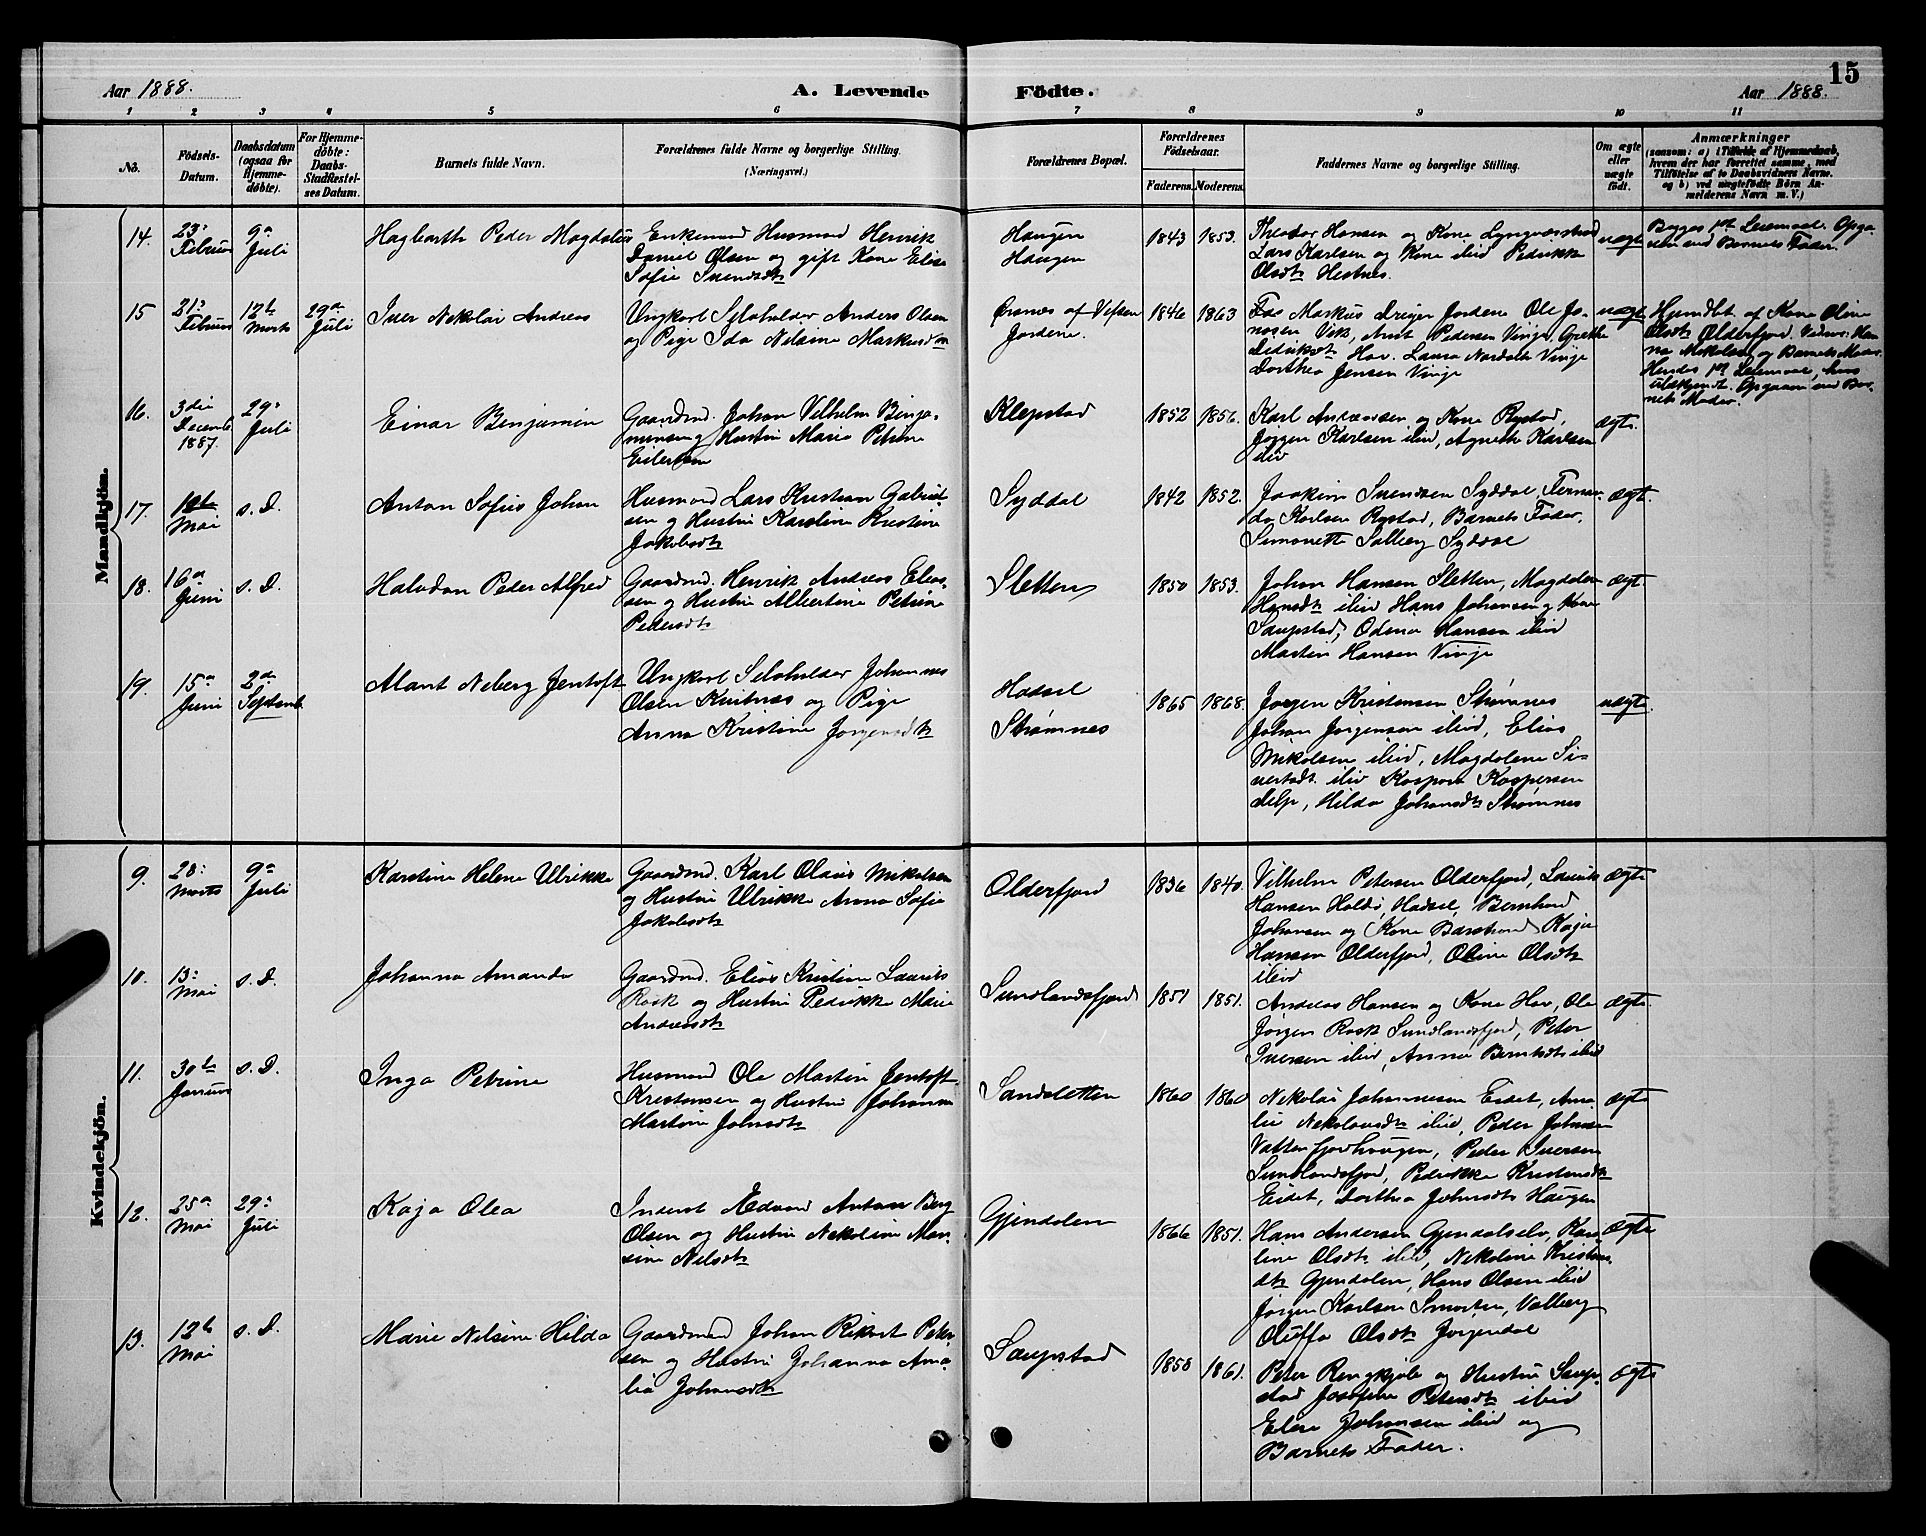 Aar 1888.
A. Levende Födte.
Aar 1888.
15
1 2 3 4 5 6 7 8 9 10 11
No.
Födsels-Datum.
Daabsdatum (ogsaa for Hjemme-döbte).
For Hjemme-döbte: Daabs-Stadfæstelses Datum.
Barnets fulde Navn.
Forældrenes fulde Navne og borgerlige Stilling. (Næringsvei.)
Forældrenes Bopæl.
Forældrenes Födselsaar.
Faderens. Moderens.
Faddernes Navne og borgerlige Stilling.
Om ægte eller uægte födt.
Anmærkninger
(saasom: a) i Tilfælde af Hjemmedaab, hvem der har forrettet samme, med Tilföielse af to Daabsvidners Navne, og b) ved uægtefödte Börn Anmelderens Navn m. V.)
Mandkjön.
14.
23:
Februar
9a
Juli
Hagbarth Peder Magdalus
Enkemand Husmand Henrik
Daniel Olsen og gift Kone Elise
Sofie Svendsdtr
Haugen
Haugen
1843
1853.
Theodor Hansen og Kone Lyngværstrand
Lars Karlsen og Kone ibid Pedrikke
Olsdtr Hestnes.
uægte
Begges 1ste Leiermaal. Opga-
ven ved Barnets Fader.
15
21:
Februar
12te
Marts
29a
Juli
Iver Nekolai Andreas
Ungkarl Selvholder Anders Olsen
og Pige Ida Nilsine Markusdtr
Ørsnes af Vefsen
Jordene.
1846
1863
Fas Markus Dreyer Jordene Ole Jo-
nosen Vik, Arnt Pedersen Vinje, Grethe
Didriksdtr Hov. Laura Nordal Vinje
Dorthea Jensen Vinje
uægte
Hjemdbt af Kone Oline
Olsdtr Olderfjord. Vidner: Han-
na Mikalsen og Barnets Moder.
Hendes 1ste Leiermaal, hans
ubekjendt. Opgaven ved Bar-
nets Moder.
16.
3die
Decemb
1887.
29:
Juli
Einar Benjamin
Gaardmd. Johan Vilhelm Binja-
minsen og Hustru Marie Petrine
Eilertsen
Klepstad
1852
1856.
Karl Andreassen og Kone Rystad,
Jørgen Karlsen ibid, Agnethe Karlsen
ibid
ægte.
17.
Mai
s. D.
Anton Sofus Johan
Husmand Lars Kristian Gabriel-
sen og Hustru Karoline Kristine
Jakobsdtr
Syddal
1842
1852.
Joakim Svendsen Syddal, Fernan-
da Karlsen Rystad, Barnets Fader,
Simonette Solberg Syddal
ægte.
18.
16a
Juni
s. D.
Halvdan Peder Alfred
Gaardmd. Henrik Andreas Elias-
sen og Hustru Albertine Petrine
Pedersdtr
Sletten
1850
1853.
Johan Hansen Sletten, Magdalene
Hansdtr ibid Hans Johansen og Kone
Saupstad, Odena Hansen ibid
Martin Hansen Vinje
ægte.
19.
15a
Juni
2den
Septemb
Marit Neberg Jentoft
Ungkarl Selvholder Johannes
Olsen Kvitnes og Pige
Anna Kristine Jørgensdtr
Hadsel
Strømnes
1865
1868.
Jørgen Kristensen Strømnes
Johan Jørgensen ibid, Elias
Mikalsen ibid, Magdalena Si-
vertsdtr ibid Kaspara Kaspersen
Delp, Hilda Johansdtr Strømnes
uægte.
Kvindekjön.
9.
20:
Marts
9a
Juli
Karstine Helene Ulrikke
Gaardmd. Karl Olaus Mikalsen
og Hustru Ulrikke Anna Sofie
Jakobsdtr
Olderfjord
1836
1840.
Vilhelm Petersen Olderfjord, Laurits
Hansen Holdö, Hadsel, Bernhard
Johansen og Kone Barstrand Kaja
Hansen Olderfjord, Oline Olsdtr
ibid
ægte
10.
13:
Mai
s. D.
Johanna Amanda
Gaardmd. Elias Kristian Laurits
Rask og Hustru Pedrikke Marie
Andreasdtr
Sundlandsfjord
1851
1851.
Andreas Hansen og Kone Hov, Ole
Jørgen Rask Sundlandsfjord, Peter
Iversen ibid, Anna Berntsdtr ibid
ægte.
11.
30te
Januar
s. D.
Inga Petrine
Husmand Ole Martin Jentoft
Kristensen og Hustru Johanna
Martine Johnsdtr
Sandsletten
1860
1860
Nekolai Johannesen Eidet, Ama-
lie Nekolaisdtr ibid, Peder Johnsen
Vatterfjordhaugen, Peder Iversen
Sundlandsfjord, Pedrikke Kristensdtr
Eidet, Dorthea Johnsdtr Haugen
ægte
12.
25a
Mai
29:
Juli
Kaja Olea
Inderst Edvard Anton Berg
Olsen og Hustru Nekoline Mar-
sine Nilsdtr
Gjendalen
1866
1851.
Hans Andersen Gjendalselv, Karo-
line Olsdtr ibid, Nekoline Kristians
dtr Gjendalen, Hans Olsen ibid
Jørgen Karlsen Smorten, Valberg
Oluffa Olsdtr Jørgendal
ægte
13.
12te
Mai
s. D.
Marie Nilsine Hilda
Gaardmand Johan Rikart Peter-
sen og Hustru Johanna Ama-
lia Johansdtr
Saupstad
1858
1861.
Peter Rengkjøb og Hustru Saup-
stad Josefine Petersdtr ibid
Elere Johansen ibid og
Barnets Fader.
ægte